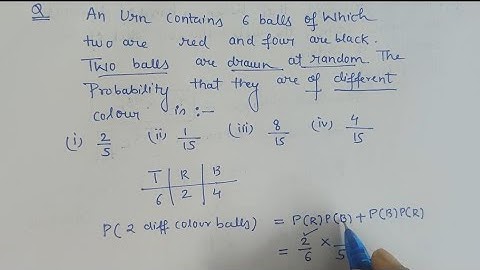 Q An Urn contains 6 balls of which
two are red and four are black.
Two balls are drawn at random. The
Probability that they are of different
colour is :-
(i) 2/5 (ii) 1/15 (iii) 8/15 (iv) 4/15
T R B
6 2 4
P(2 diff colour balls) = P(R)P(B)+P(B)P(R)
= 2/6 × /5